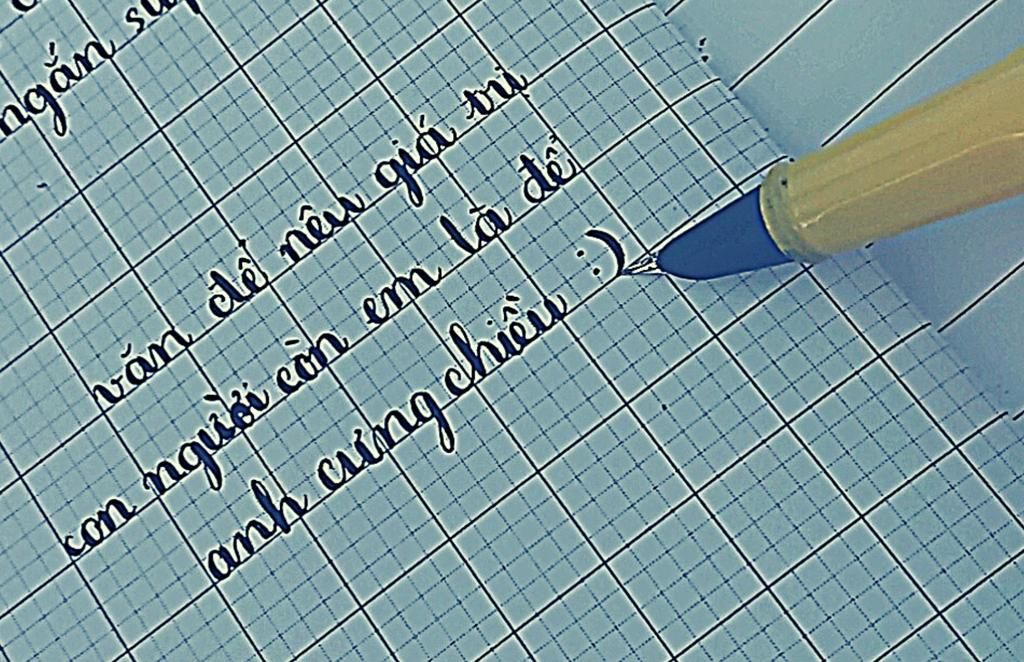 ngắn
văn để nêu giá trị
con người còn em là để
anh cưng chiều :)